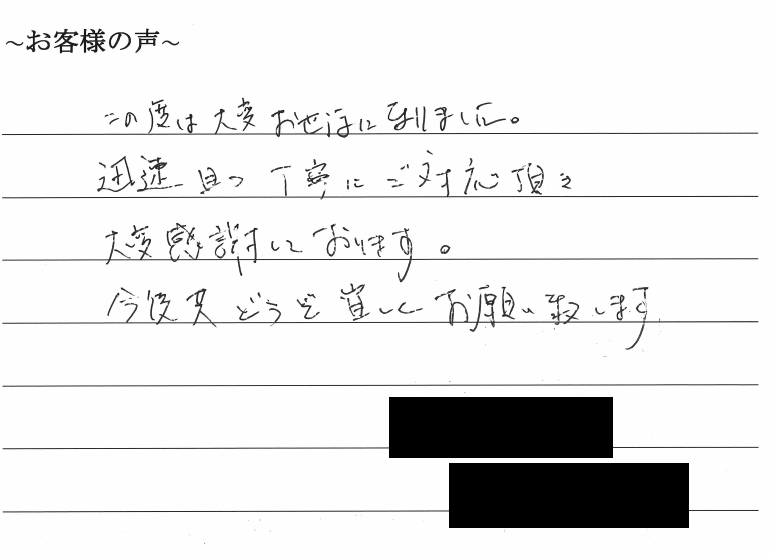 ~お客様の声~
この度は大変お世話になりました。
迅速且つ丁寧にご対応頂き
大変感謝しております。
今後共どうぞ宜しくお願い致します